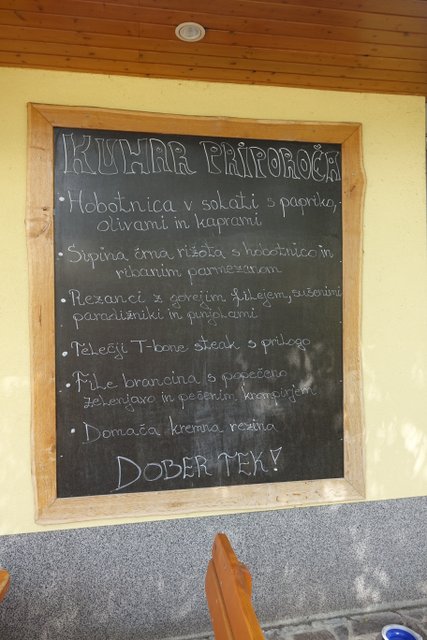 KUHAR PRIPOROČA
• Hobotnica v solati s papriko,
olivami in kaprami
• Sipina črna rižota s hobotnico in
ribanim parmezanom
• Rezanci z govejim filejem, sušenimi
paradižniki in pinjolami
• Telečji T-bone steak s prilogo
• File brancina s popečeno
zelenjavo in pečenim krompirjem
• Domača kremna rezina
DOBER TEK!